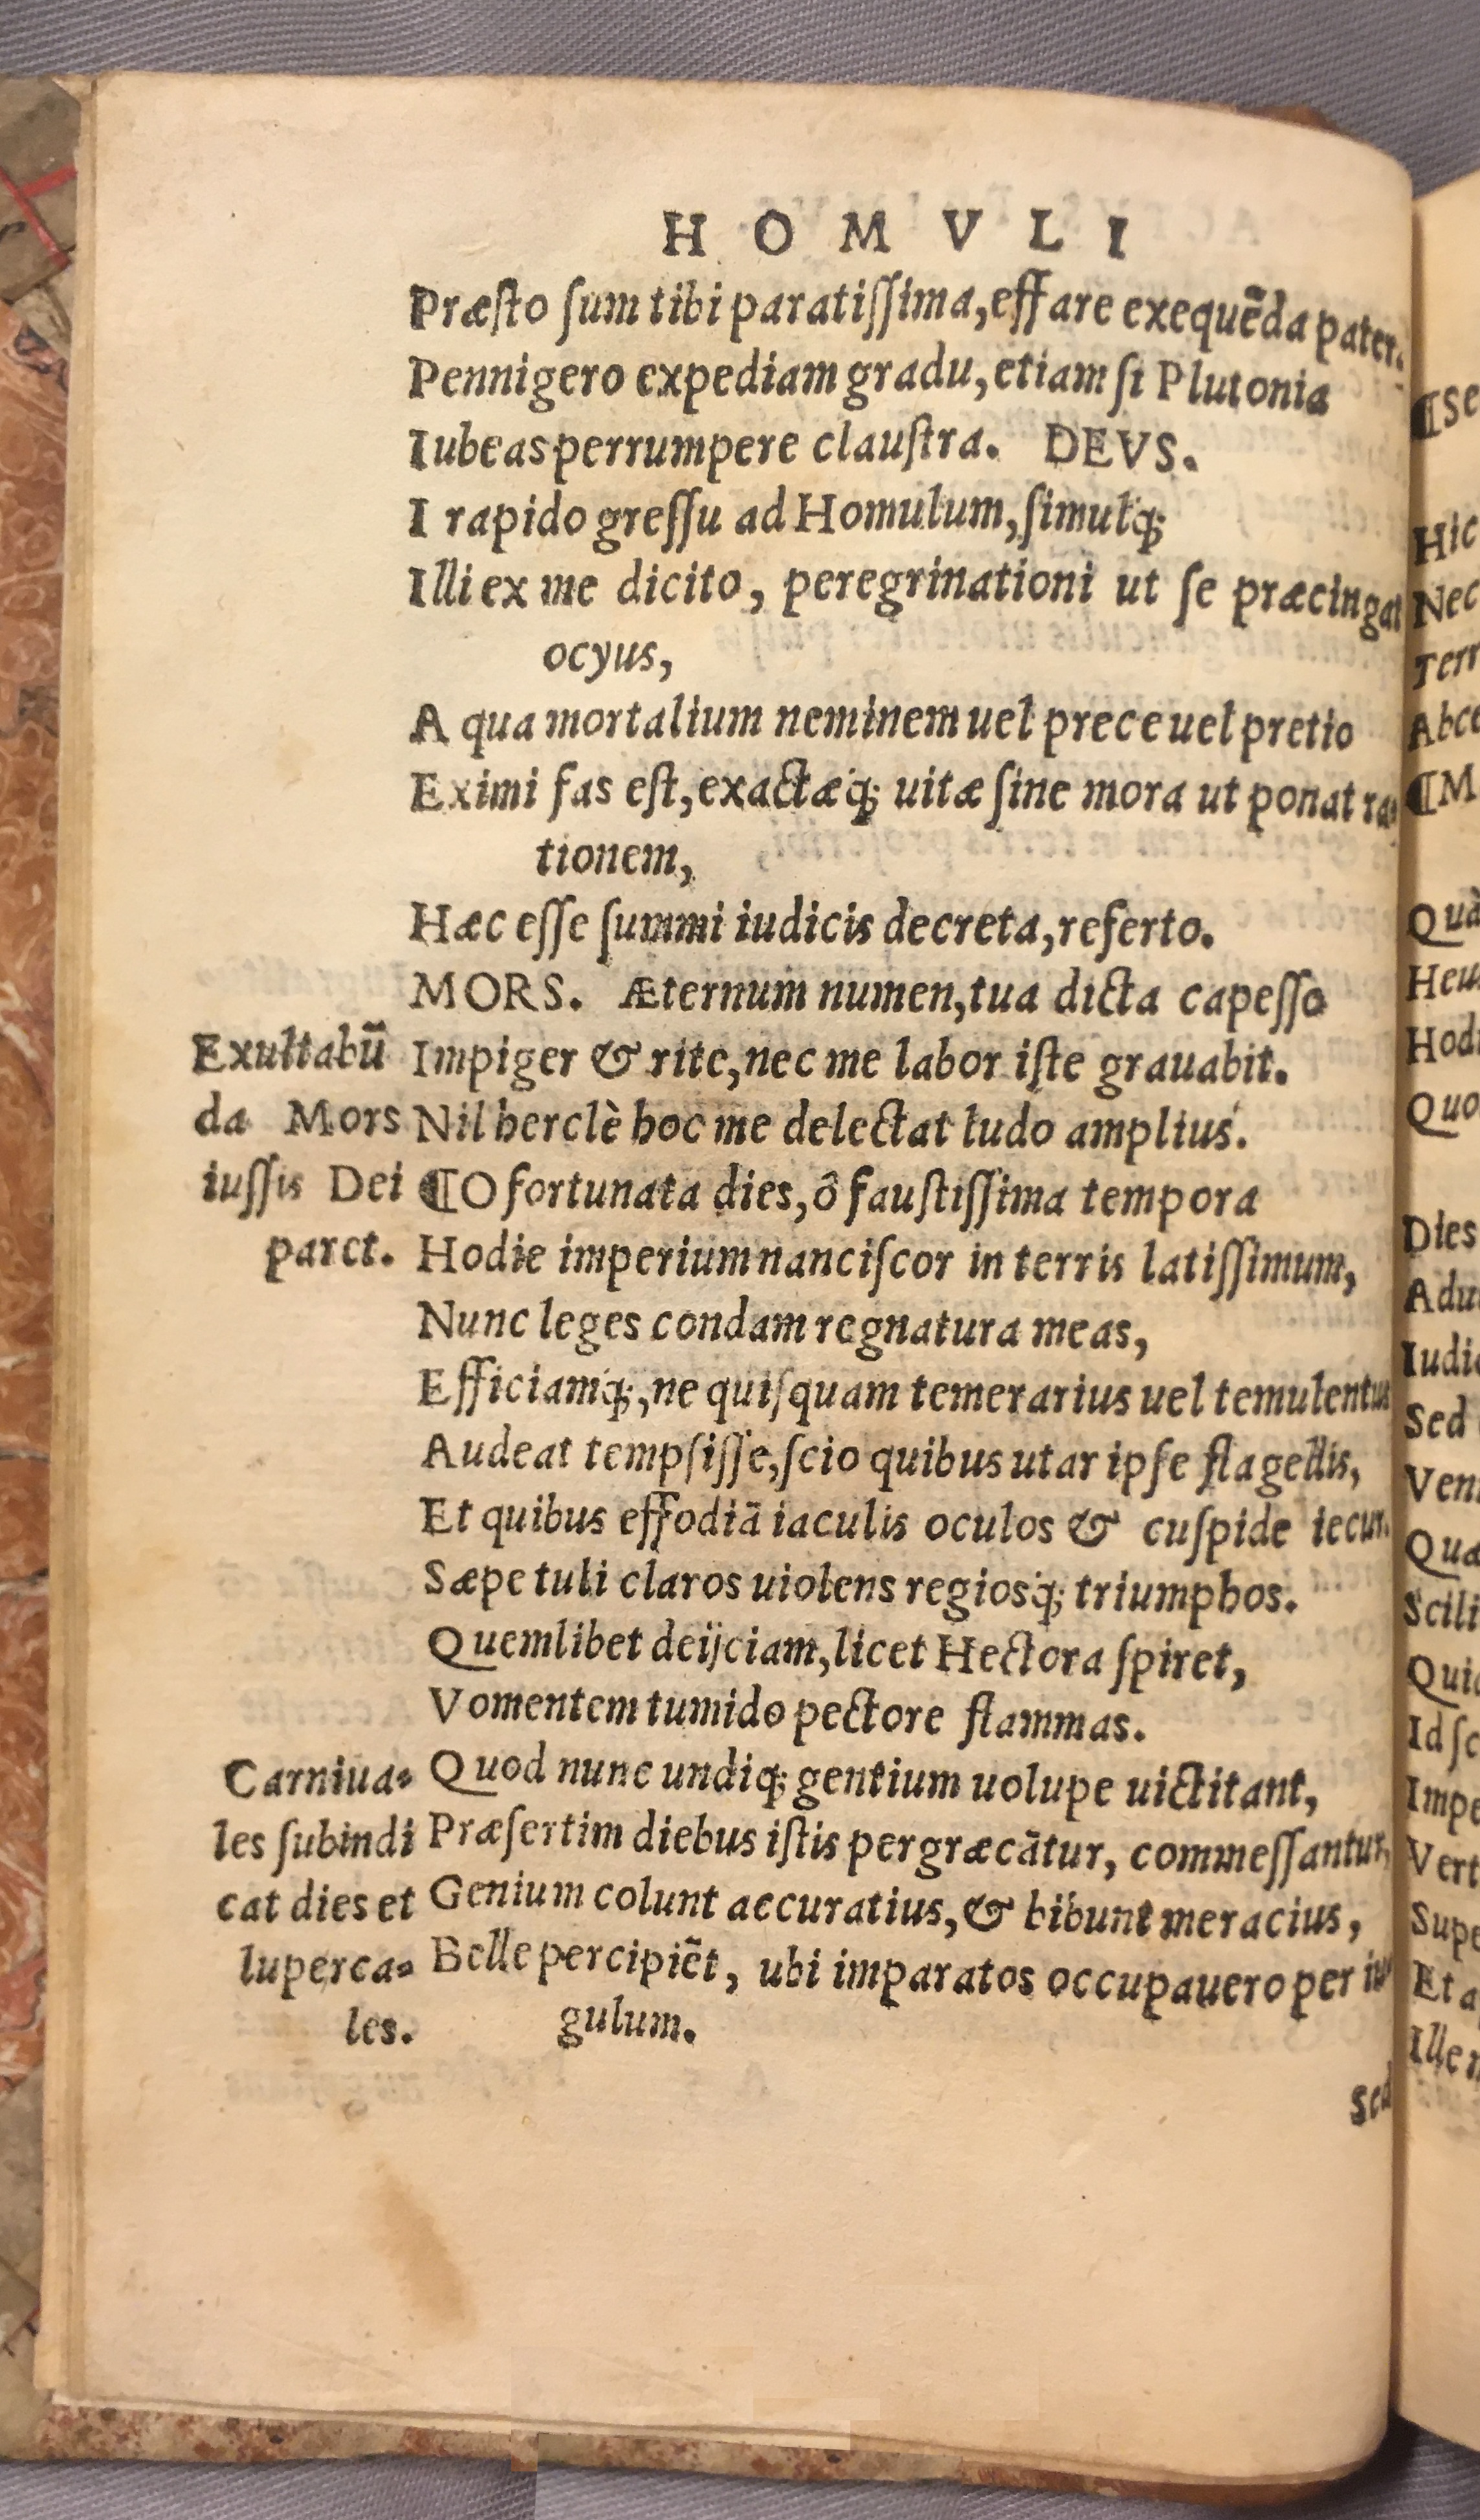 HOMVLI
Præſto ſum tibi paratiſſima, effare exequēda pater.
Pennigero expediam gradu, etiam ſi Plutonia
Iubeas perrumpere clauſtra. DEVS.
I rapido greſſu ad Homulum, ſimulq;
Illi ex me dicito, peregrinationi ut ſe præcingat
ocyus,
A qua mortalium neminem uel prece uel pretio
Eximi fas eſt, exactæq; uitæ ſine mora ut ponat ra-
tionem,
Hæc eſſe ſummi iudicis decreta, referto.
MORS. Æternum numen, tua dicta capeſſo
Impiger & rite, nec me labor iſte grauabit.
Nil herclè hoc me delectat ludo amplius.
¶O fortunata dies, ô fauſtiſſima tempora
Hodie imperium nanciſcor in terris latiſſimum,
Nunc leges condam regnatura meas,
Efficiamq;, ne quiſquam temerarius uel temulentus
Audeat tempſiſſe, ſcio quibus utar ipſe flagellis,
Et quibus effodiā iaculis oculos & cuſpide iecur.
Sæpe tuli claros uiolens regiosq; triumphos.
Quemlibet deijciam, licet Hectora ſpiret,
Vomentem tumido pectore flammas.
Quod nunc undiq; gentium uolupe uictitant,
Præſertim diebus iſtis pergræcātur, commeſſantur,
Genium colunt accuratius, & bibunt meracius,
Belle percipiēt, ubi imparatos occupauero per iu-
gulum.
Sed
Exultabū
da Mors
iuſſis Dei
paret.
Carniua-
les ſubindi
cat dies et
luperca-
les.
¶Se
Hic
Nec
Terr
Abce
¶M
Quà
Heu
Hodi
Quo
Dies
Adu
Iudi
Sed
Ven
Qua
Scili
Qui
Id ſc
Impe
Vert
Supe
Et a
Ille